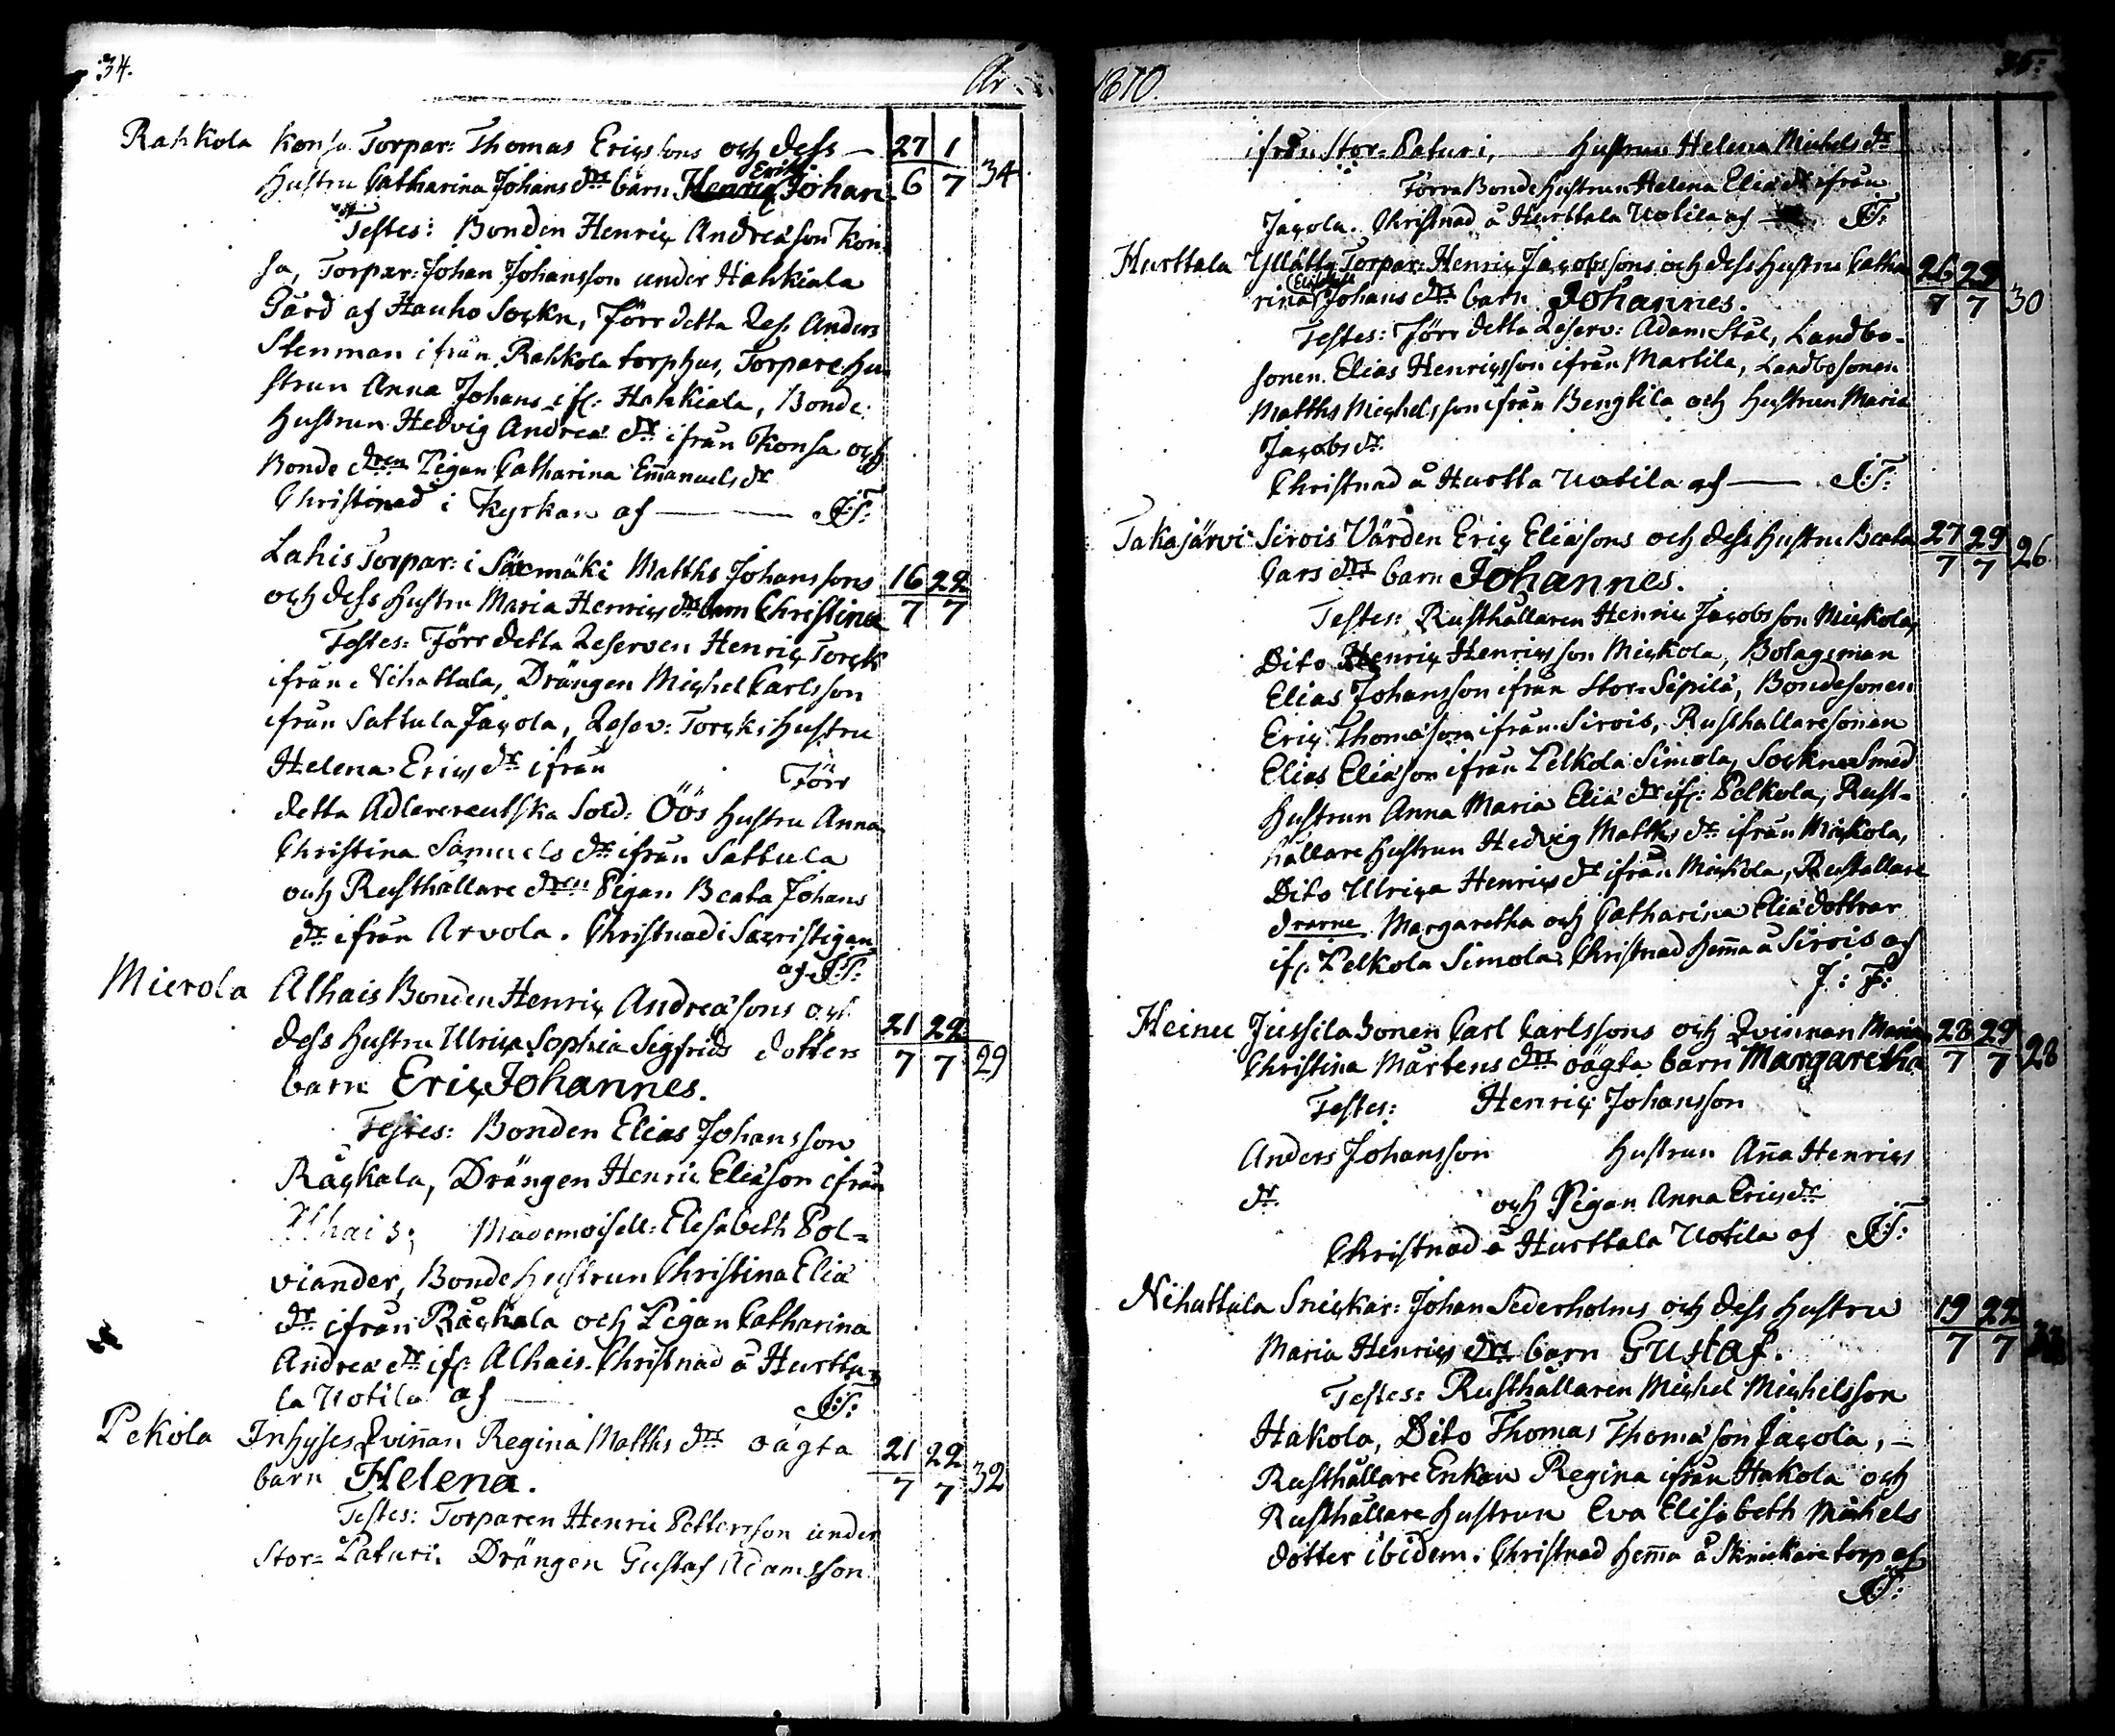 34.
År
Rahkola Konsa Torpar: Thomas Ericssons och dess — 27 1
Eric
Hustru Catharina Johans drs barn Henric Johan 6 7 34
Testes: Bonden Henric Andreæson Kon-
sa, Torpar: Johan Johansson under Hahkiala
Gård af Hauho Sockn, Förr detta Res. Anders
Stenman ifrån Rahkola torphus, Torpare hu-
strun Anna Johans if: Hahkiala, Bonde
Hustrun Hedvig Andreæ dr ifrån Konsa och
Bonde dren Pigan Catharina Emanuels dr
Christnad i Kyrkan af —
Lahis Torpar: i Säxmäki Matths Johanssons 16 22
och dess hustru Maria Henrics drs barn Christina 7 7
Testes: Förr detta Reserven Henric Torck
ifrån Nihattula, Drängen Michel Carlsson
ifrån Sattula Jacola, Reserv: Torcks Hustru
Helena Erics dr ifrån Förr
detta Adlercreutska Sold: Öös hustru Anna
Christina Samuels dr ifrån Sattula
och Rusthållare dren Pigan Beata Johans
dr ifrån Arvola. Christnad i Sacristigan
af J:T:
Mierola Alhais Bonden Henric Andreæsons och
dess hustru Ulrica Sophia Sigfrids dotters 21 22
barn Eric Johannes. 7 7 29
Testes: Bonden Elias Johansson
Råckala, Drängen Henric Eliæson ifrån
Alhais; Mademoisell: Elesabeth Pol-
viander, Bonde hustrun Christina Eliæ
dr ifrån Råckala och Pigan Catharina
Andreæ dr if: Alhais. Christnad å Hurtta-
la Uotila af — J:T:
Pekola Inhyses Qvinnan Regina Matths drs oägta 21 22
barn Helena. 7 7 32
Testes: Torparen Henric Pettersson under
Stor-Paturi. Drängen Gustaf Adamsson
1810
35:
ifrån Stor-Paturi, hustrun Helena Michels dr
Förra Bonde hustrun Helena Eliæ dr ifrån
Jacola. Christnad å Hurttala Uotila af — J:T:
Hurttala Yllätty Torpar: Henric Jacobssons och dess hustru Catha 26 29
rinas Johans drs barn Johannes. 7 7 30
Testes: Förr detta Reserv: Adam Stål, Landbo-
sonen Elias Henricsson ifrån Martila, Landbosonen
Matths Michelsson ifrån Bengtila och hustrun Maria
Jacobs dr
Christnad å Hurtta Uotila af — J:T:
Takajärvi Sirois Värden Eric Eliæsons och dess hustru Beata 27 29
Cars drs barn Johannes. 7 7 26
Testes: Rusthållaren Henric Jacobsson Mickola,
Dito Henric Henricsson Mickola, Bolagsman
Elias Johansson ifrån Stor-Sipilä, Bondesonen
Eric Thomæson ifrån Sirois, Rusthållaresonen
Elias Eliæson ifrån Pelkola Simola, Sockne Smed
hustrun Anna Maria Eliæ dr if: Pelkola, Rust-
hållare hustrun Hedvig Matths dr ifrån Mickola,
Dito Ulrica Henrics dr ifrån Mickola, Rusthållare
drarne Margaretha och Catharina Eliæ dottrar
if: Pelkola Simola. Christnad hema å Sirois af
J: T:
Heinu Jussila Sonen Carl Carlssons och Qvinnan Maria 28 29
Christina Mårtens drs oägta barn Margaretha 7 7 28
Testes: Henric Johansson
Anders Johansson Hustrun Ana Henrics
dr. och Pigan Anna Erics dr
Christnad å Hurttala Uotila af J:T:
Nihattula Snickar: Johan Sederholms och dess hustru 19 22
Maria Henrics drs barn Gustaf. 7 7
Testes: Rusthållaren Michel Michelsson
Hakola, Dito Thomas Thomæson Jacola, —
Rusthållare Enkan Regina ifrån Hakola och
Rusthållare hustrun Eva Elisabeth Michels
dotter ibidem. Christnad hema å Snickare torp af
J:T: